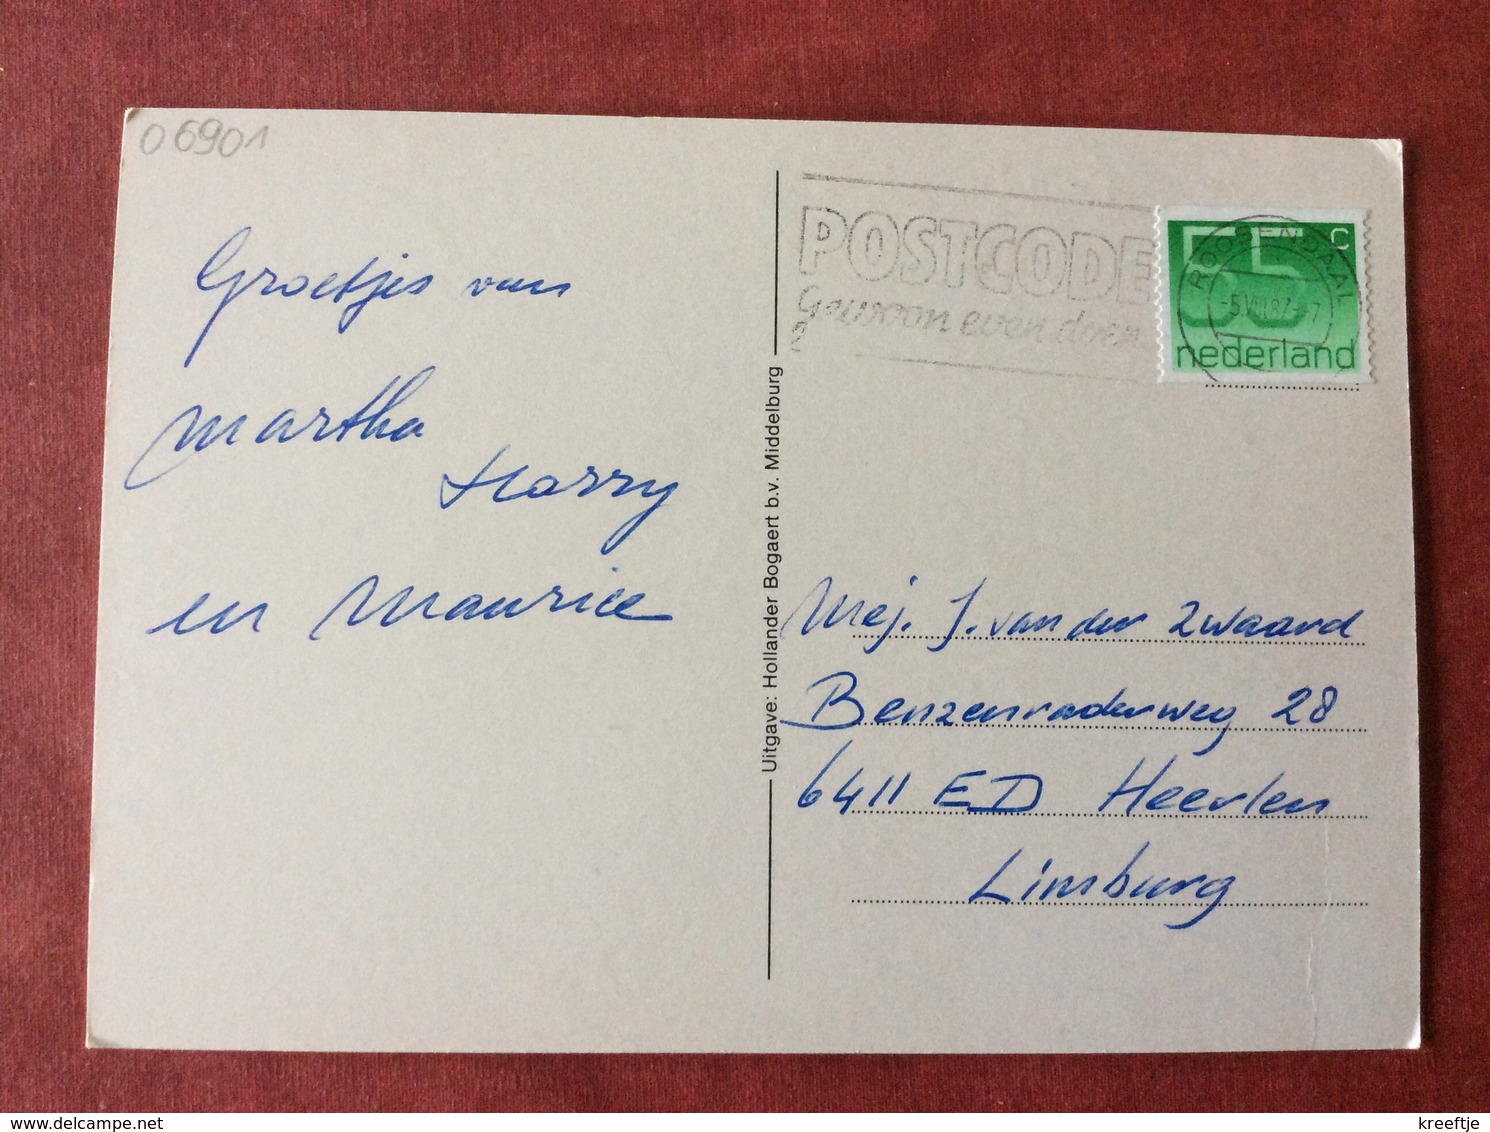 06901
Groetjes van
Martha
Harry
en Maurice
Uitgave: Hollander Bogaert b.v. Middelburg
POSTCODE
Gewoon even doen
2
ROOSENDAAL
55 c
nederland
Mej. J. van der Zwaard
Benzenraderweg 28
6411 ED Heerlen
Limburg
© delcampe.net
kreeftje